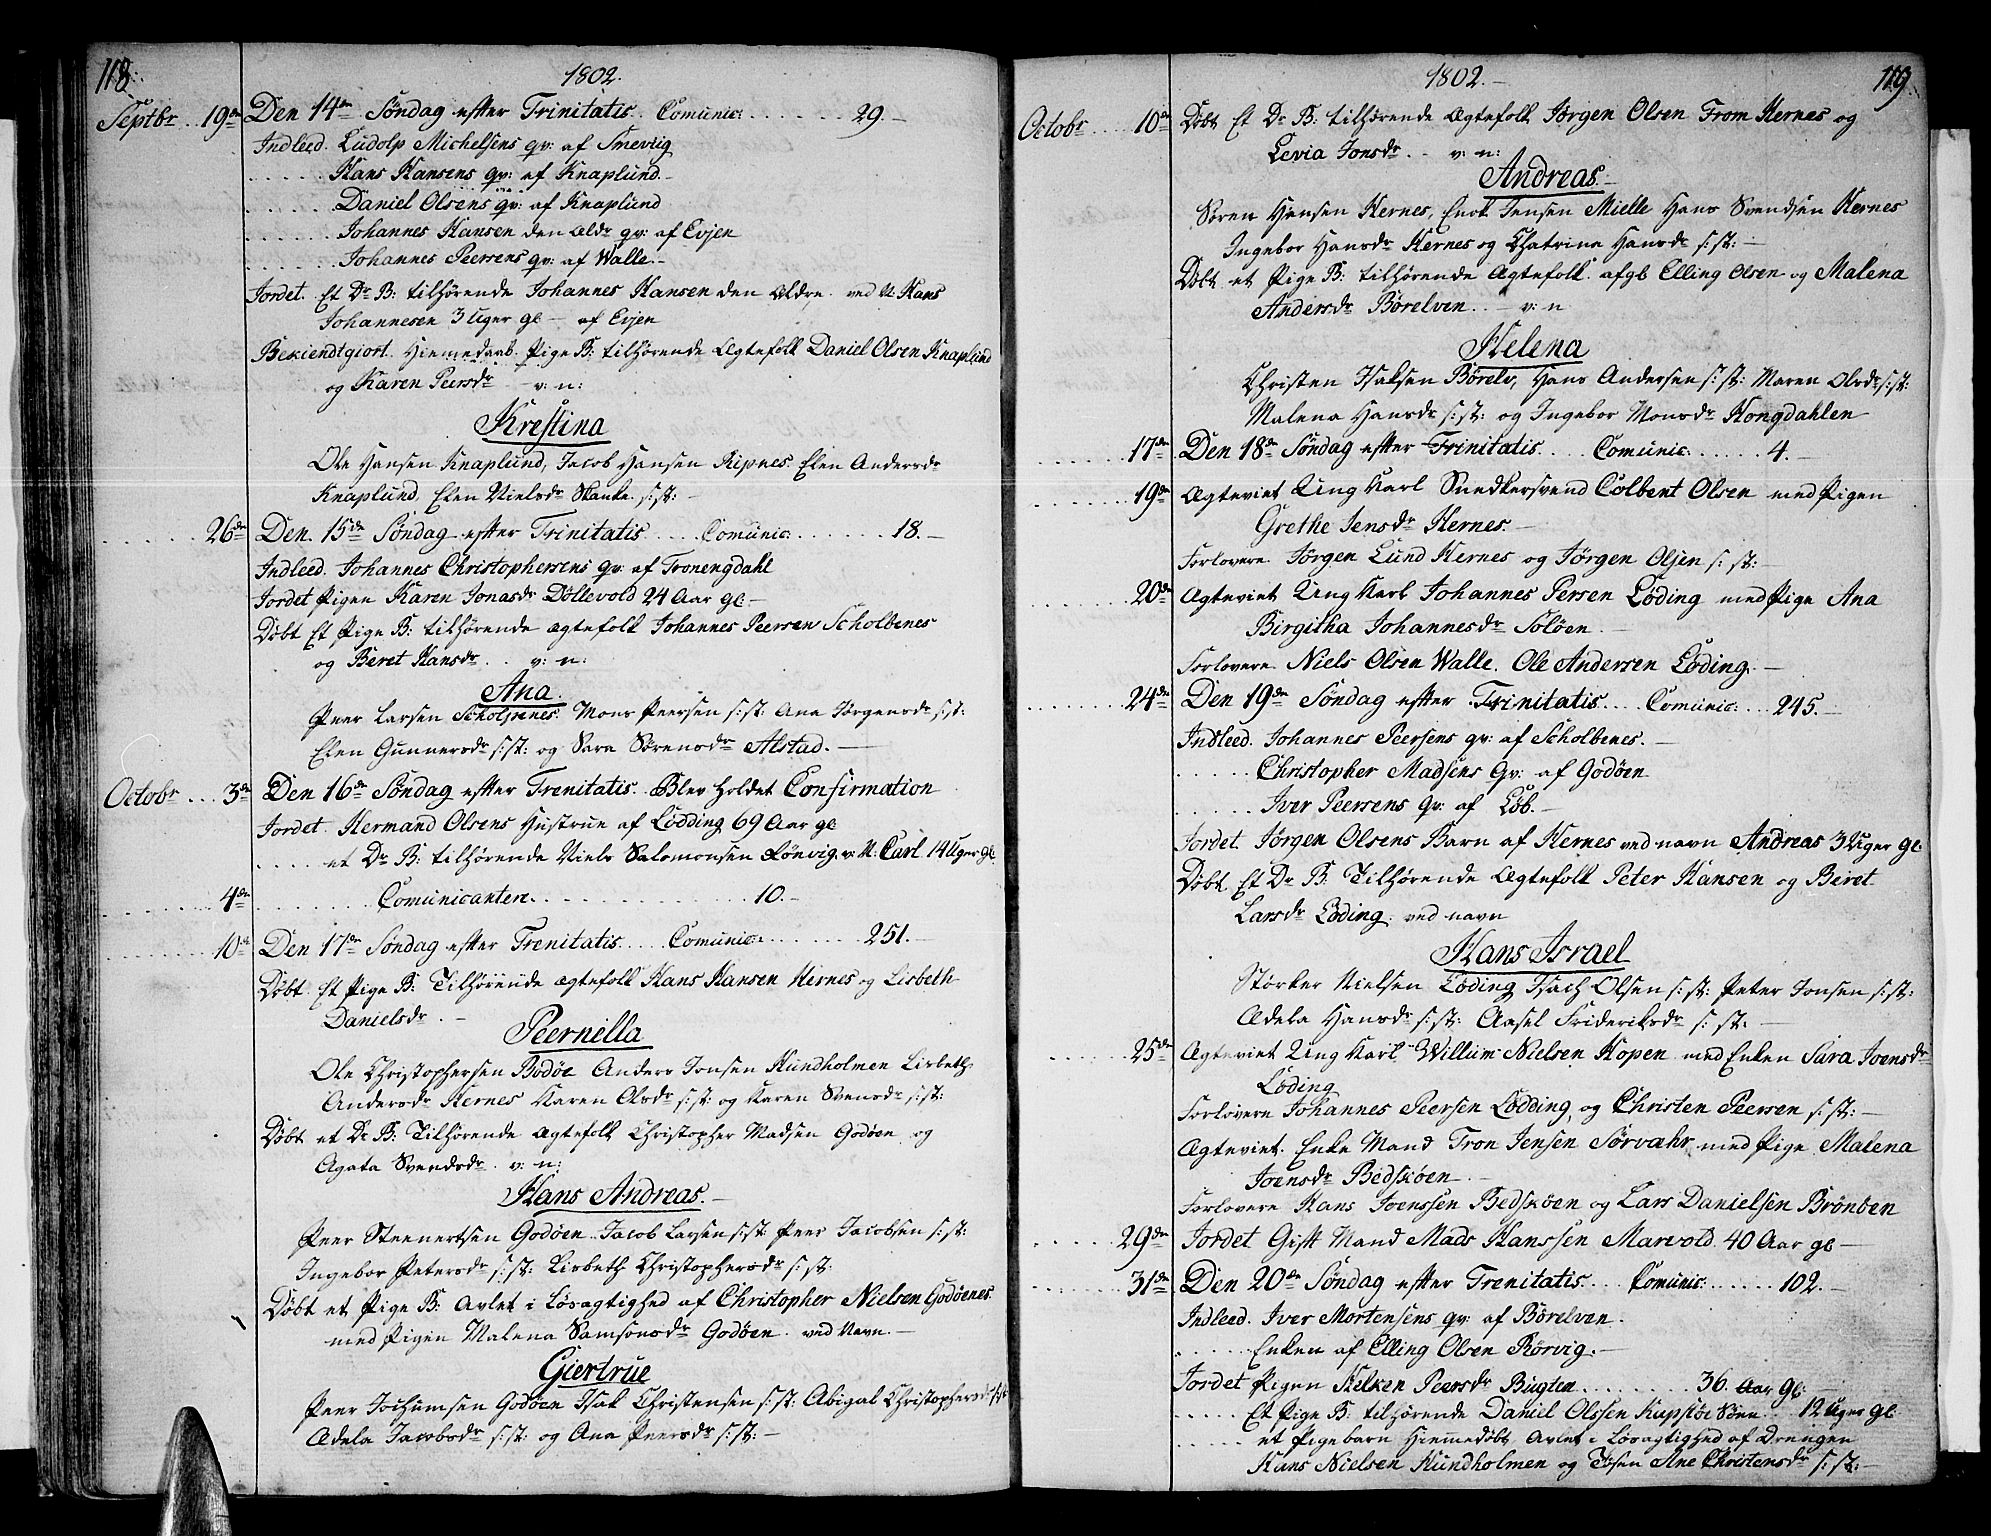 118.
1802.
Septbr 19de Den 14de Søndag efter Trinitatis. Comunic: 29.
Indleed. Ludolp Michelsens qv: af Smeviig
Hans Hansens qv: af Knaplund.
Daniel Olsens qv: af Knaplund
Johannes Hansen den Aldr qv: af Evjen
Johannes Peersens qv: af Walle.
Jordet. Et Dr B: tilhørende Johannes Hansen den Aldre. ved N. Hans
Johannesen 3 Uger gl af Evjen
Bekiendtgiort. Hiemedaab. Pige B: tilhørende Ægtefolk Daniel Olsen Knaplund
og Karen Peersdr v: n:
Krestina
Ole Hansen Knaplund, Jacob Hansen Ripnes. Elen Andersdr
Knaplund, Elen Nielsdr Skanke s: st:
26de Den 15de Søndag efter Trinitatis. Comunic: 18.
Indleed. Johannes Christophersens qv: af Tronengdahl
Jordet Pigen Karen Jonasdr Døllevold 24 Aar gl
Døbt Et Pige B: tilhørende ægtefolk Johannes Peersen Scholbenes
og Beret Hansdr. v: n:
Ana.
Peer Larsen Scholpenes. Mons Peersen s: st: Ana Jørgensdr s: st:
Elen Gunnersdr s: st: og Sara Sørensdr Alstad.
Octobr 3de Den 16de Søndag efter Trenitatis. Blev Holdet Confirmation
Jordet. Hermand Olsens Hustrue af Lødding 69 Aar gl
et Dr B: tilhørende Niels Salomonsen Lønvig. v: N: Carl 14 Uger gl
4de Comunicantere. 10.
10de Den 17de Søndag efter Trenitatis. Comunic: 251.
Døbt. Et Pige B: Tilhørende ægtefolk Hans Hansen Hernes og Lisbeth
Danielsdr.
Peernilla
Ole Christophersen Bodøe Anders Jonsen Hundholmen Lisbeth
Andersdr Hernes Karen Olsdr s: st: og Karen Svensdr s: st:
Døbt et Dr B: Tilhørende ægtefolk Christopher Madsen Godøen og
Agata Svendsdr. v: n:
Hans Andreas.
Peer Steenertsen Godøen. Jacob Larsen s: st: Peer Jacobsen s: st:
Ingebor Petersdr s: st: Lisbeth Christophersdr s: st:
Døbt et Pige B: Avlet i Løsagtighed af Christopher Nielsen Godøenes
med Pigen Malena Samsonsdr Godøen. ved Navn.
Giertrue
Peer Jochumsen Godøen Isak Christensen s: st: Abigal Christophersdr s: st:
Ædela Jacobsdr s: st: og Ana Peersdr s: st:
1802.
119.
Octobr 10de Døbt Et Dr B: tilhørende Ægtefolk Jørgen Olsen From Hernes og
Levia Jonsdr. v: n:
Andreas.
Søren Hansen Hernes, Enok Jensen Mielle Hans Svendsen Hernes
Ingebor Hansdr Hernes og Chatrina Hansdr s: st:
Døbt et Pige B: tilhørende Ægtefolk. afgl Elling Olsen og Malena
Andersdr Børelven. v: n
Helena
Christen Isaksen Børelv, Hans Andersen s: st: Maren Olsdr s: st:
Malena Hansdr s: st: og Ingebor Monsdr Hongdahlen
17de Den 18de Søndag efter Trinitatis. Comunic: 4.
19de Ægteviet Ung Karl Snedkersvend Colbent Olsen med Pigen
Grethe Jensdr Hernes.
Forlovere Jørgen Lund Hernes og Jørgen Olsen s: st:
20de Ægteviet Ung Karl Johannes Persen Løding med Pige Ana
Birgitha Johannesdr Soløen.
Forlovere Niels Olsen Walle. Ole Andersen Løding.
24de Den 19de Søndag efter Trinitatis. Comunic: 245.
Indleed. Johannes Peersens qv: af Scholbenes.
Christopher Madsens Qv: af Godøen
Iver Peersens qv: af Løb.
Jordet. Jørgen Olsens Barn af Hernes ved navn Andreas 3 Uger gl.
Døbt Et Dr B. Tilhørende Ægtefolk Peter Hansen og Beret
Larsdr Løding. ved navn
Hans Israel
Størker Nielsen Løding Isach Olsen s: st: Peter Jonsen s: st:
Ædela Hansdr s: st: Aasel Frideriksdr s: st:
25de Ægteviet Ung Karl Willum Nielsen Kopen med Enken Sara Joensdr
Løding
Forlovere Johannes Peersen Lødding, og Christen Peersen s: st:
Ægteviet. Enke Mand Tron Jensen Sørvahr med Pige Malena
Joensdr Bedskøen
Forlovere Hans Joenssen Bedskøen og Lars Danielsen Brønden
29de Jordet Gift Mand Mads Hanssen Marvold 40 Aar gl
31de Den 20de Søndag efter Trenitatis. Comunic: 102.
Indleed. Iver Mortensens qv: af Børelven.
Enken af Elling Olsen Rørvig.
Jordet Pigen Kielken Peersdr Bugten 36 Aar gl
Et Pige B: tilhørende Daniel Olssen 12 Uger gl
et Pigebarn Hiemmedøbt Avlet i Løsagtighed af Drengen
Hans Nielsen Hundholmen og Tøsen Ane Christensdr s: st: